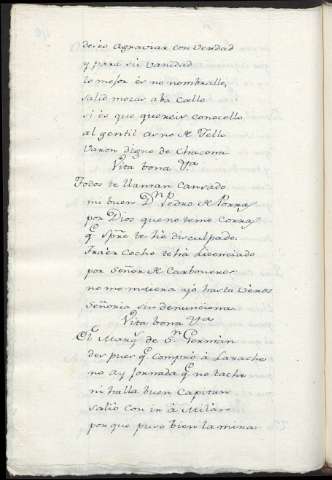 deies agraviar con verdad
y para su vanidad
lo mejor es no nombralle,
salio mozas a la Calle
si es que quereis conocello
al gentil asno A Tello
Varon digno de chacona
Vita bona Vª
Todos te llaman Cansado
mi buen Dⁿ Pedro A Porras
por Dios que no teme Corras
q̃ spre te he disculpado.
Traer coche te ha licenciado
por señor A Carboneros
no me muera yo hasta Veros
señoria sin denunciona
Vita bona Vª
El Marq̃ de Sⁿ German
despues q̃ compró á Larache
no ay jornada q̃ no tache
ni halla buen Capitan
salio con ir á Milan
por que puso bien la mira